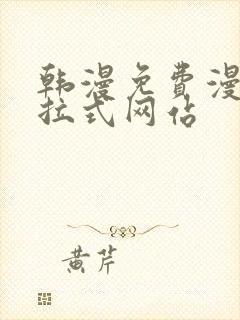 韩漫免费漫
拉式网佔
黄芹